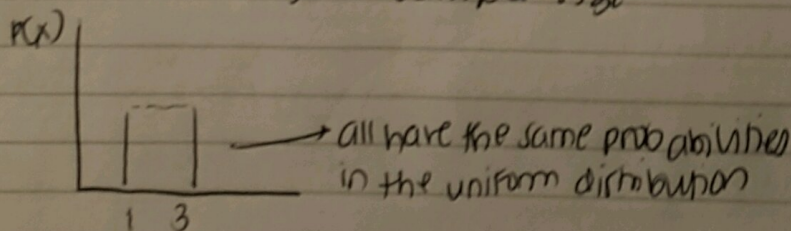 P(x)
all have the same probabilities
in the uniform distribution
1 3